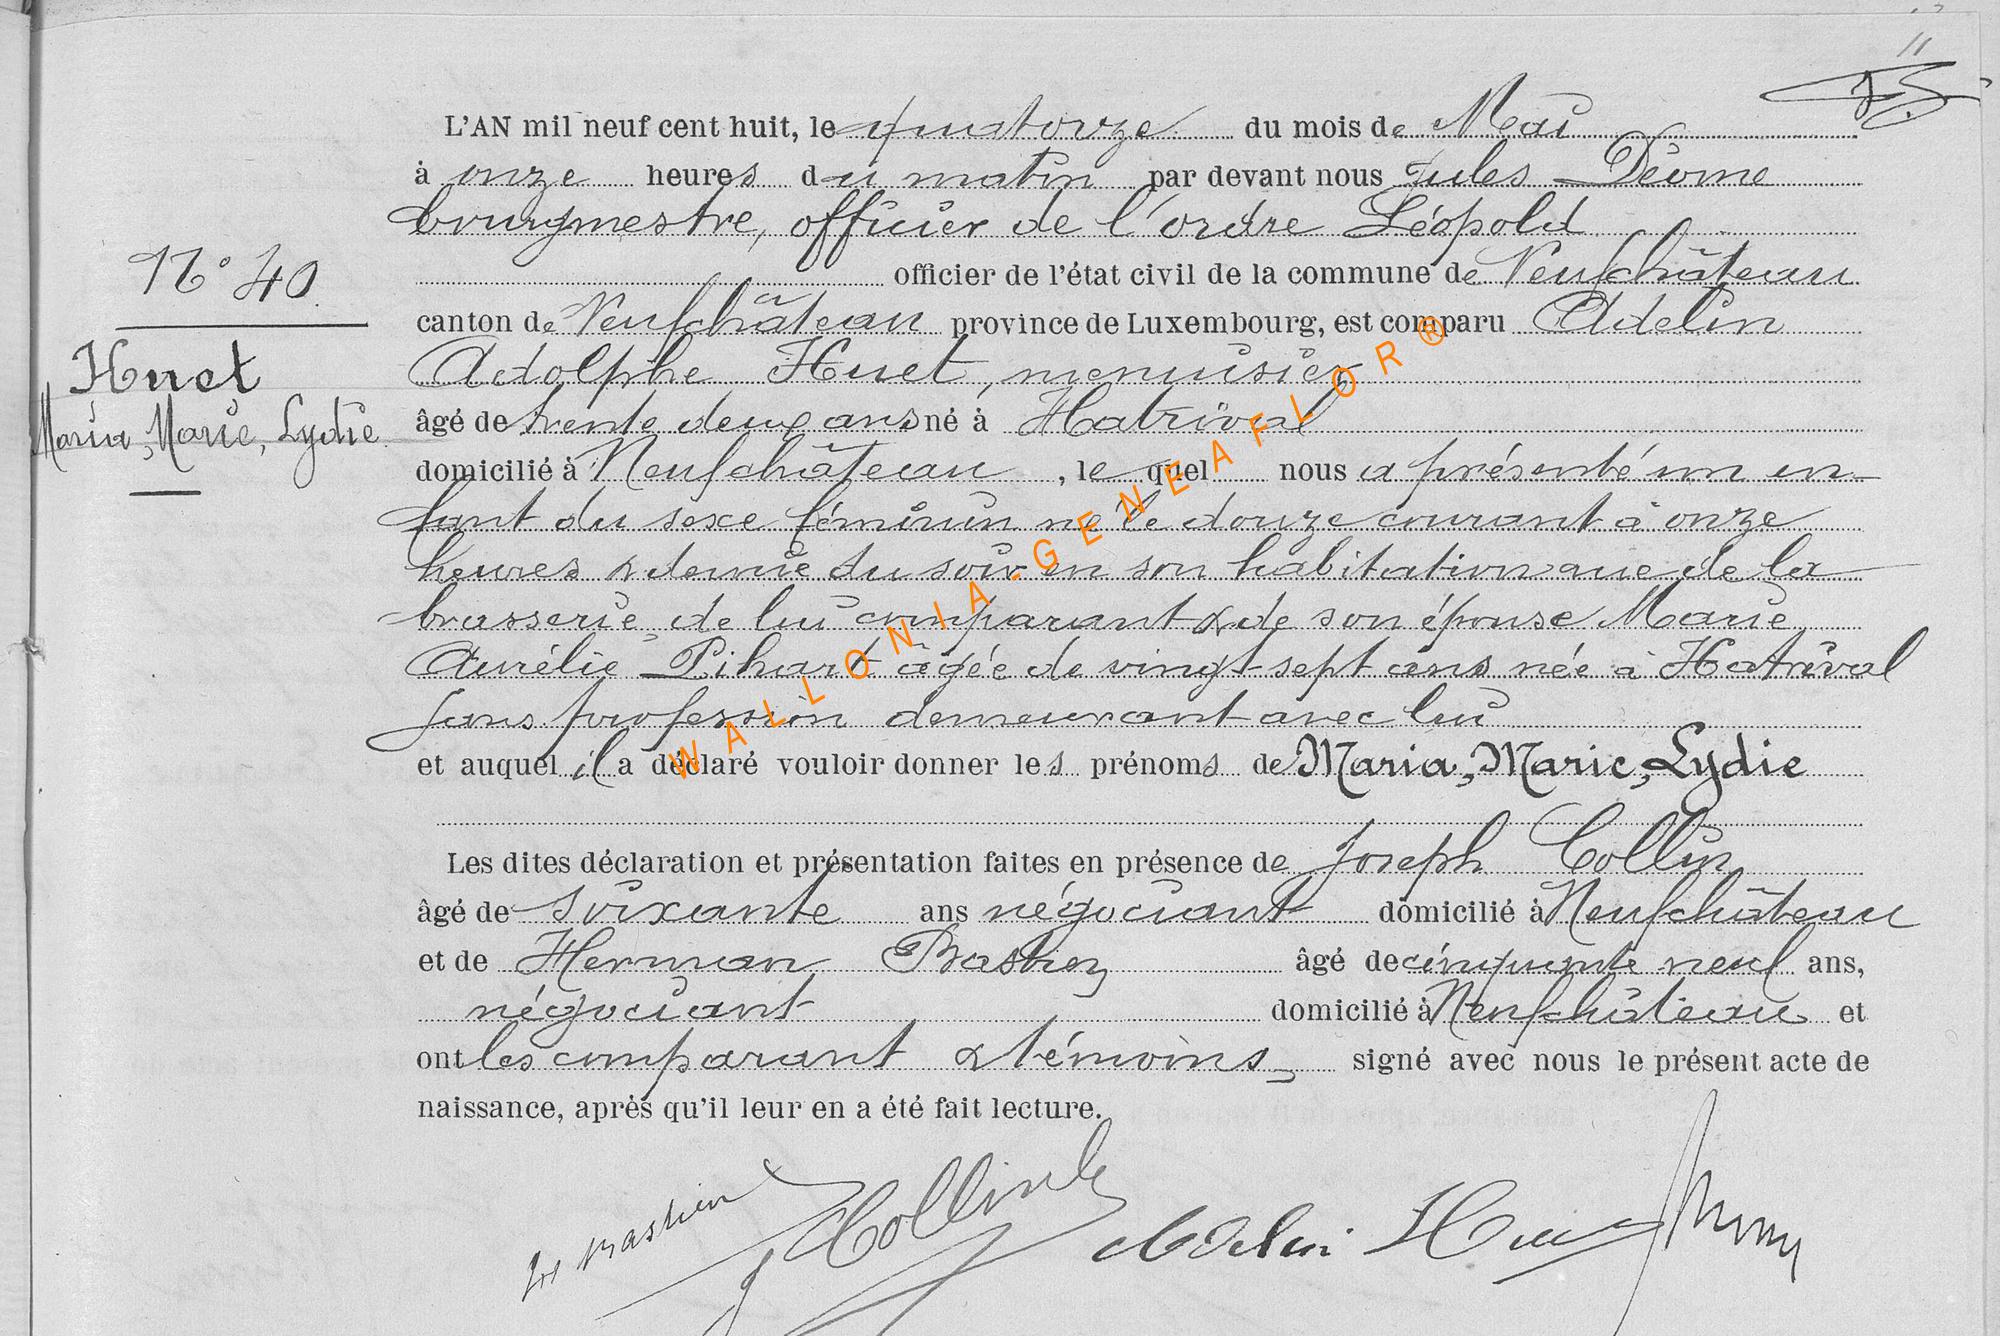 11
L'AN mil neuf cent huit, le quatorze du mois de Mai
à onze heures du matin par devant nous Jules Déome
bourgmestre, officier de l'ordre Léopold
officier de l'état civil de la commune de Neufchâteau
N° 40
canton de Neufchâteau province de Luxembourg, est comparu Adelin
Huet
Adolphe Huet, menuisier
Maria, Marie, Lydie
âgé de trente deux ans né à Hatrival
domicilié à Neufchâteau, lequel nous a présenté un en-
fant du sexe féminin né le douze courant à onze
heures & demie du soir en son habitation rue de la
brasserie, de lui comparant & de son épouse Marie
Aurélie Pihart âgée de vingt-sept ans née à Hatrival
sans profession demeurant avec lui
et auquel il a déclaré vouloir donner les prénoms de Maria, Marie, Lydie
Les dites déclaration et présentation faites en présence de Joseph Collin
âgé de soixante ans négociant domicilié à Neufchâteau
et de Herman Bastien âgé de cinquante neuf ans,
négociant domicilié à Neufchâteau et
ont les comparant & témoins signé avec nous le présent acte de
naissance, après qu'il leur en a été fait lecture.
Bastien J Collin Adelin Huet
WALLONIA-GENEAFLOR®